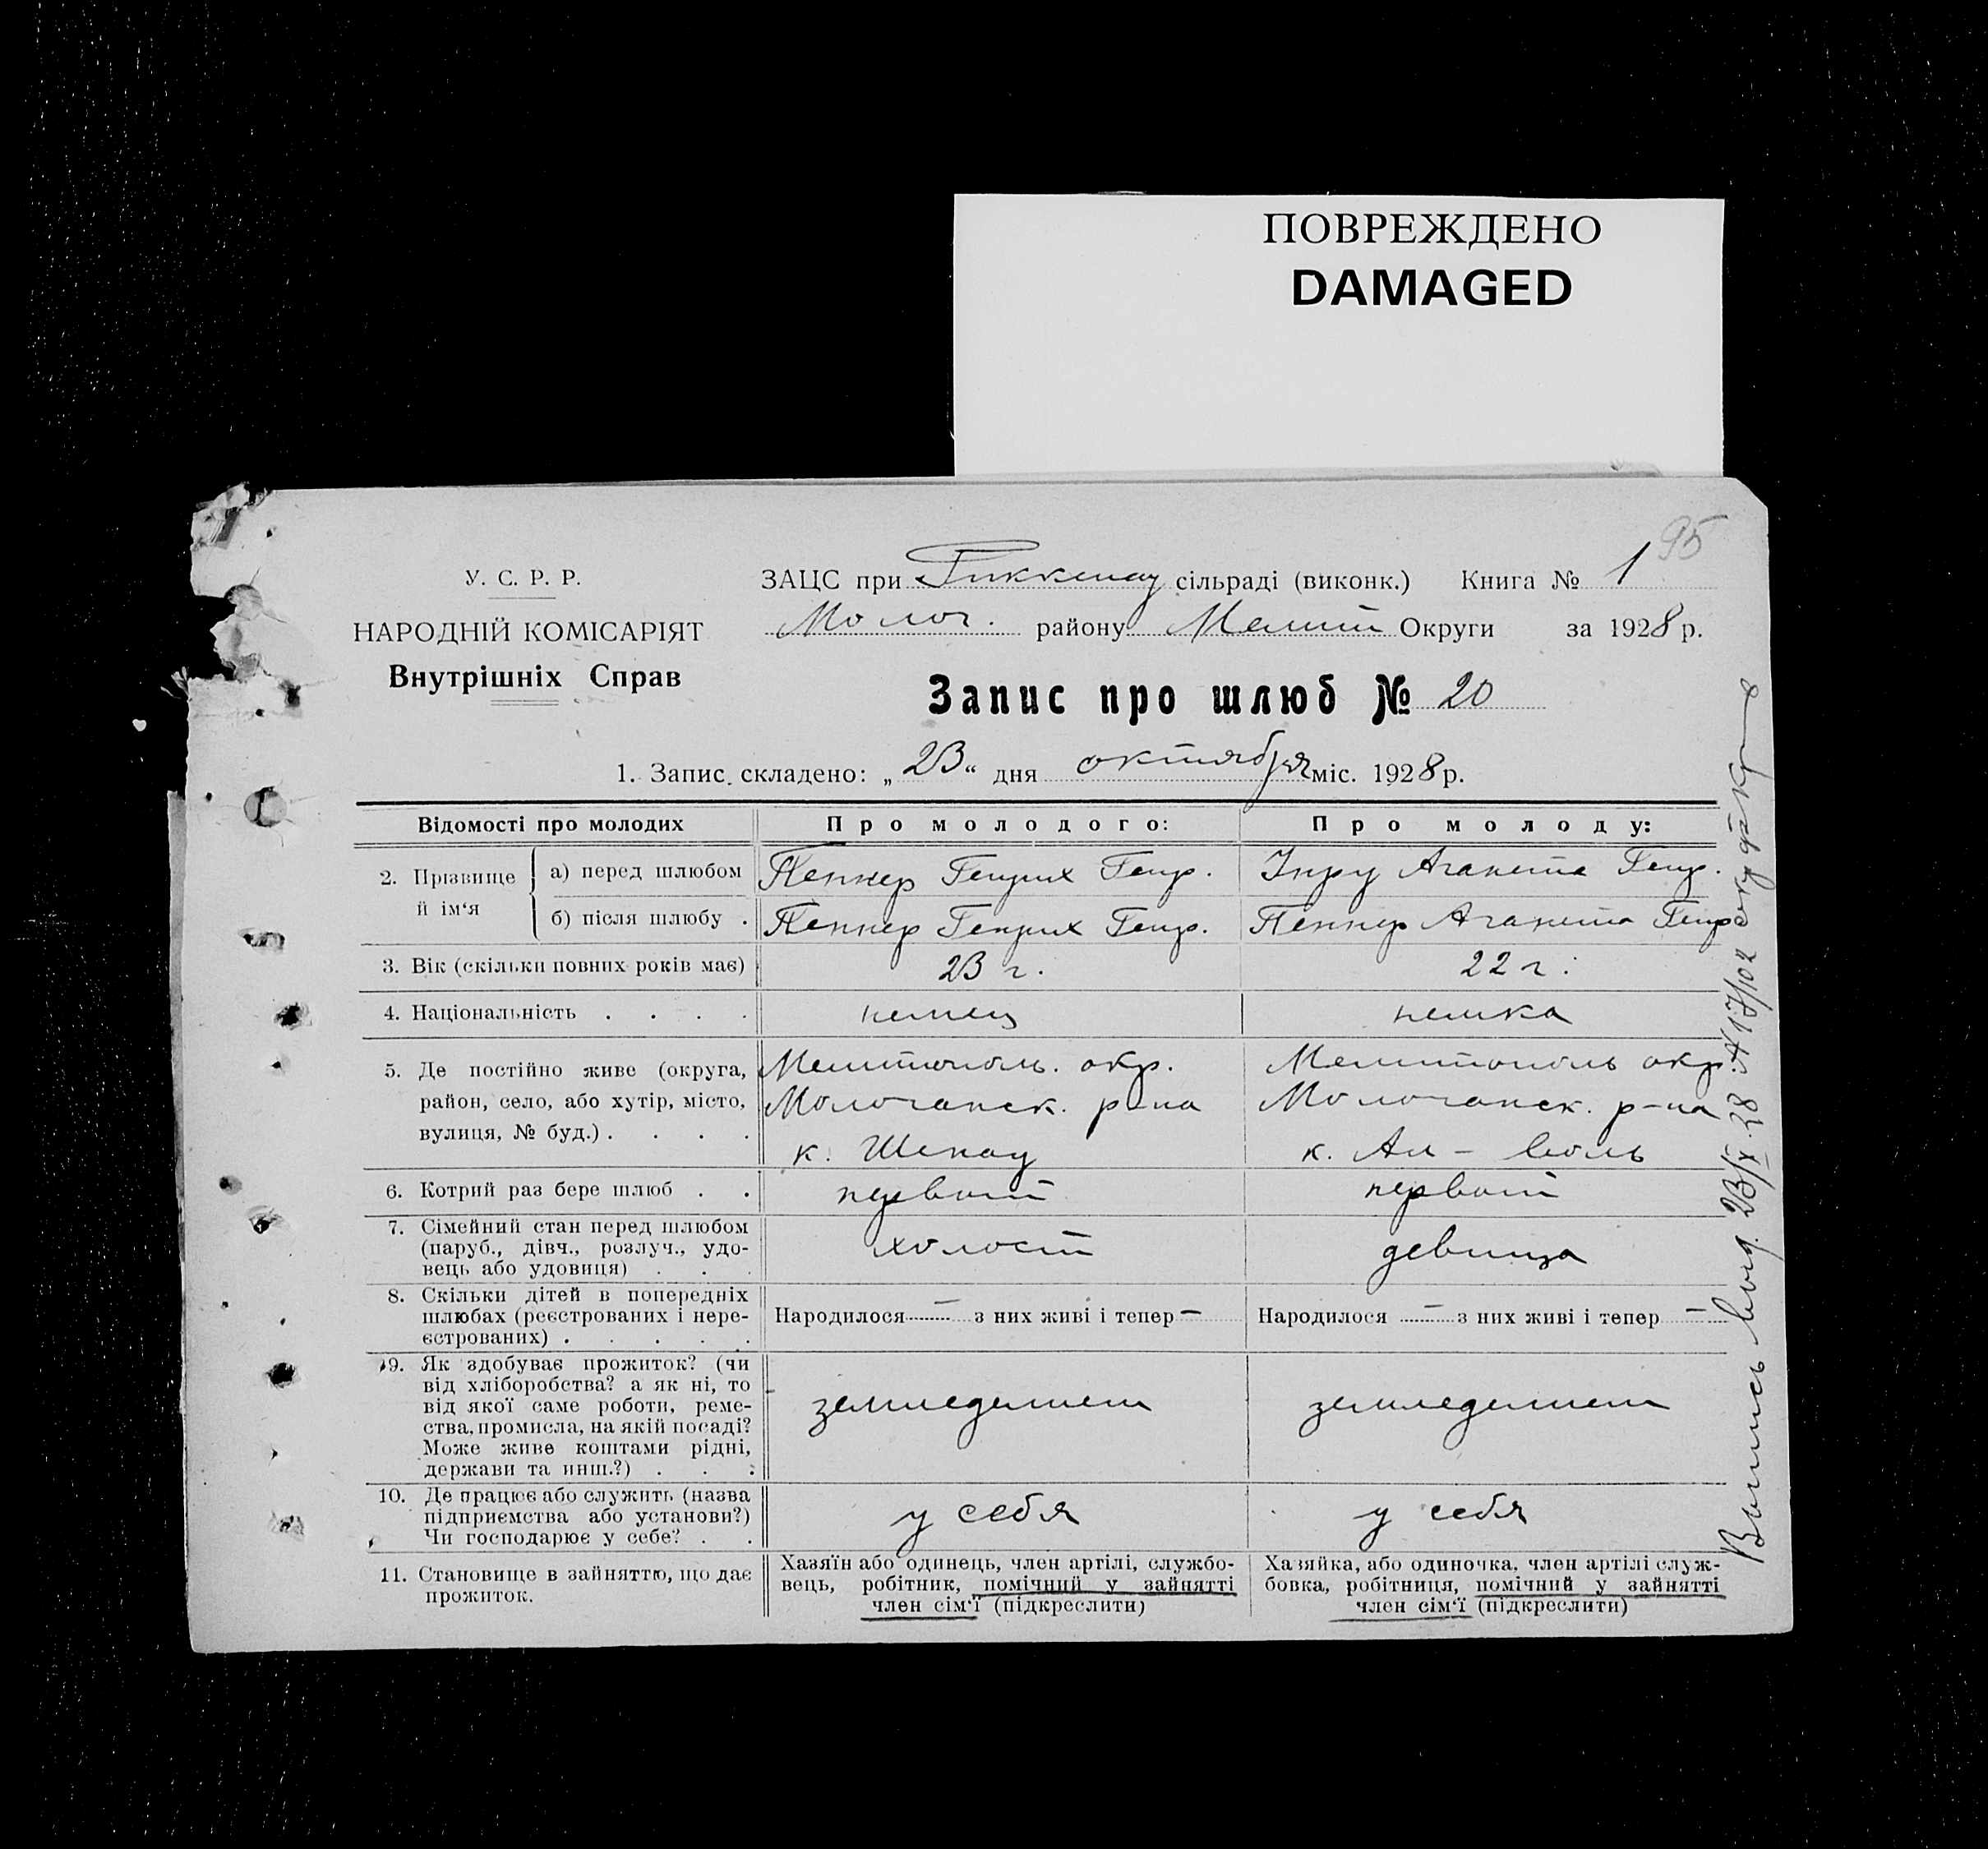 ПОВРЕЖДЕНО
DAMAGED
95
У. С. Р. Р.
НАРОДНІЙ КОМІСАРІЯТ
Внутрішніх Справ
ЗАЦС при Риккенау сільраді (виконк.) Книга № 1
Молоч. району Мелит Округи за 1928 р.
Запис про шлюб № 20
1. Запис складено: „23“ дня октября міс. 1928 р.
Відомості про молодих Про молодого: Про молоду:
2. Прізвище й ім‘я
а) перед шлюбом Пеннер Генрих Генр. Унру Аганета Генр.
б) після шлюбу . Пеннер Генрих Генр. Пеннер Аганета Генр
3. Вік (скільки повних років має) 23 г. 22 г.
4. Національність . . . . немец немка
5. Де постійно живе (округа, Мелитополь. окр. Мелитополь окр.
район, село, або хутір, місто, Молочанск. р-на Молочанск. р-на
вулиця, № буд.) . . . . к. Шенау к. Ал-
6. Котрий раз бере шлюб . . первый первый
7. Сімейний стан перед шлюбом
(паруб., дівч., розлуч., удо- холост девица
вець або удовиця) . . .
8. Скільки дітей в попередніх
шлюбах (реєстрованих і нере- Народилося — з них живі і тепер — Народилося — з них живі і тепер —
єстрованих) . . . . .
9. Як здобуває прожиток? (чи
від хліборобства? а як ні, то
від якої саме роботи, реме- земледелием земледелием
ства, промисла, на якій посаді?
Може живе коштами рідні,
держави та инш.?) . . .
10. Де працює або служить (назва
підприємства або установи?) у себя у себя
Чи господарює у себе? . .
11. Становище в зайняттю, що дає
прожиток.
Хазяїн або одинець, член артілі, службо-
вець, робітник, помічний у зайнятті
член сім‘ї (підкреслити)
Хазяйка, або одиночка, член артілі служ-
бовка, робітниця, помічний у зайнятті
член сім‘ї (підкреслити)
Выпись выд. 23/X 28